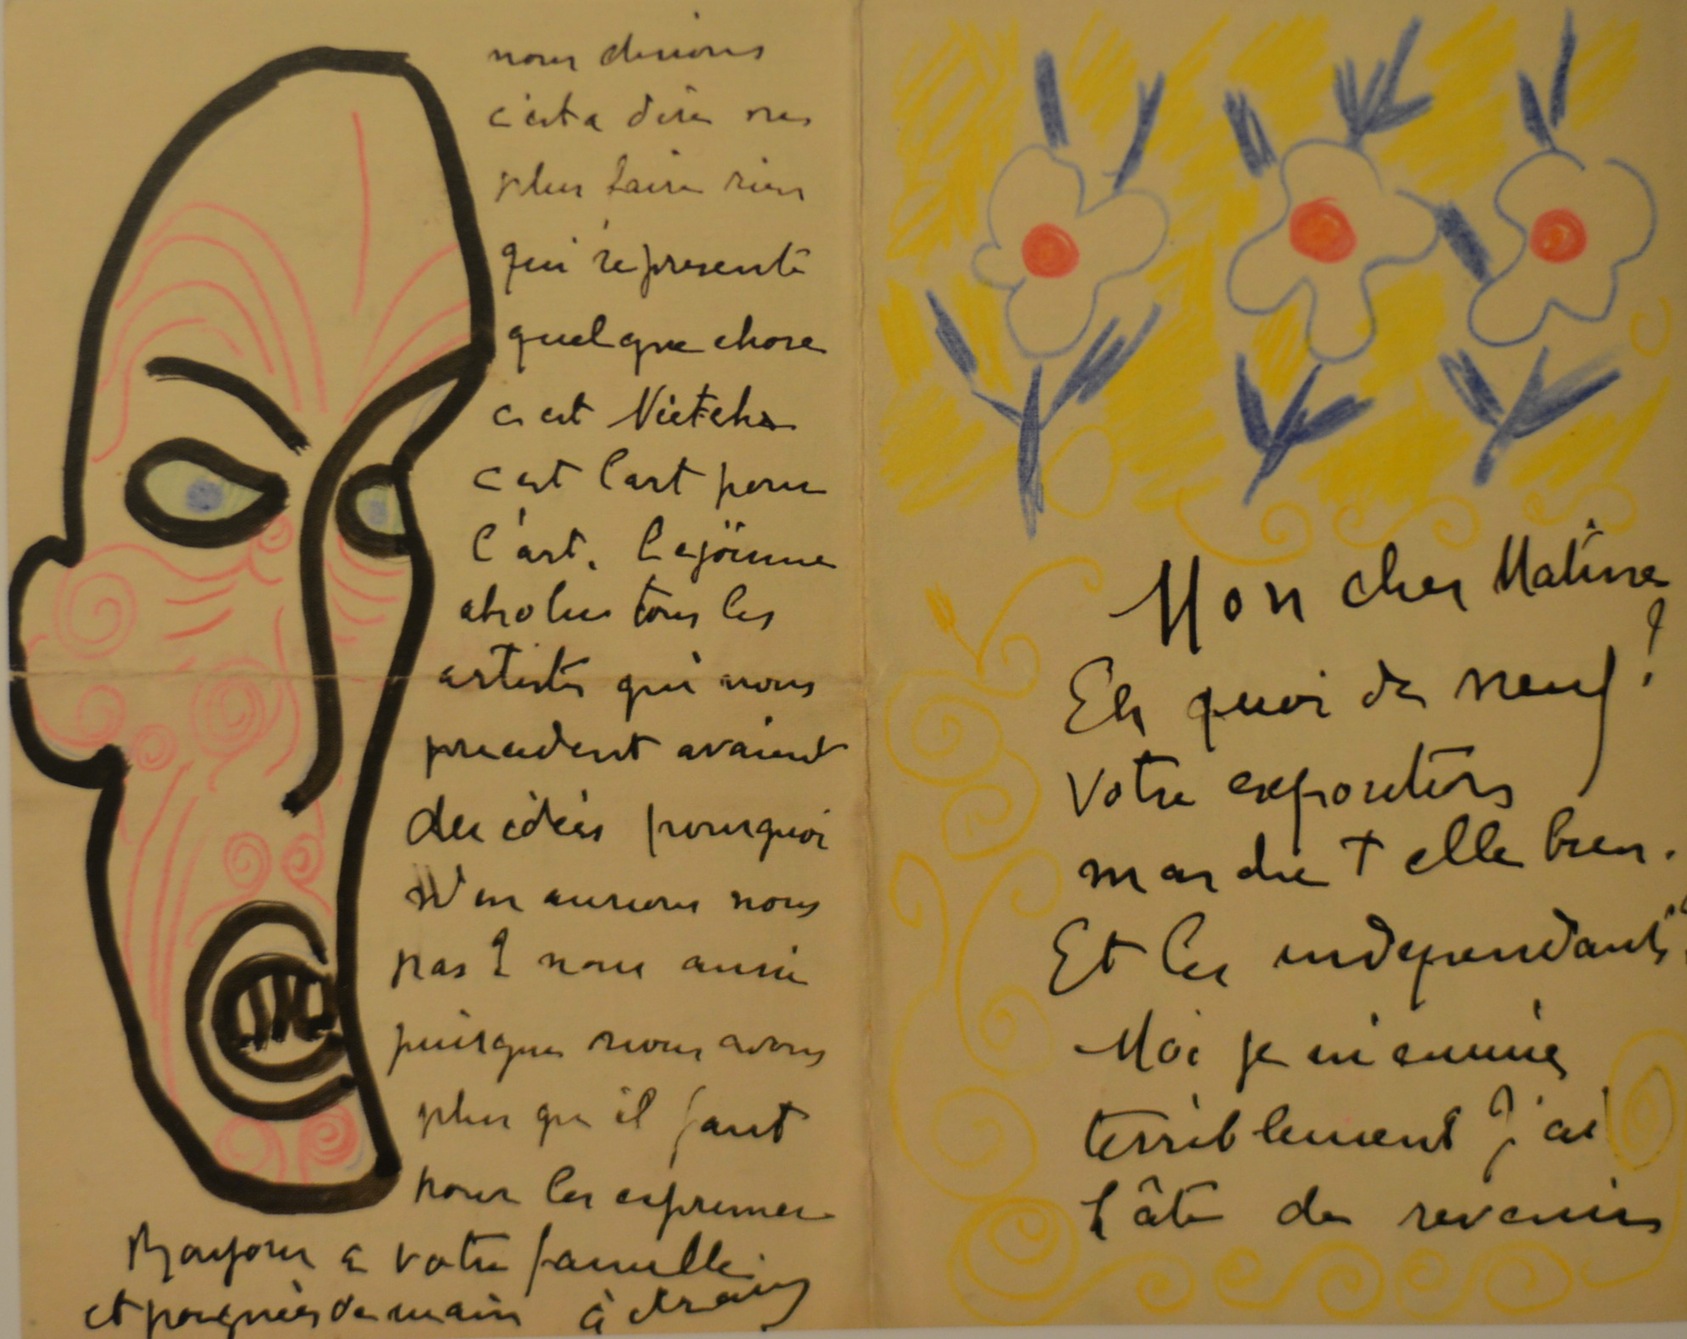 Mon cher Matisse
Eh quoi de neuf!
Votre exposition
marche t elle bien.
Et les independants
Moi je m'ennuie
terriblement J'ai
hâte de revenir
nous disions
c'est a dire ne
plus faire rien
qui représente
quelque chose
c'est Nietche
c'est l'art pour
l'art. Le jeûne
absolu tous les
artistes qui nous
precedent avaient
des idées pourquoi
N'en aurions nous
pas? nous aussi
puisque nous avons
plus qu'il faut
pour les exprimer
Bonjour a votre famille
et poignées de main a derain